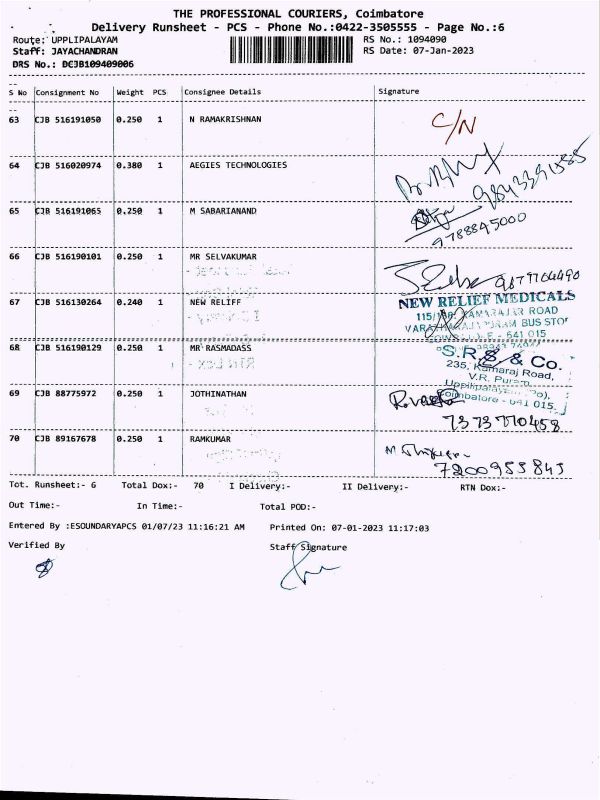 THE PROFESSIONAL COURIERS, Coimbatore
Delivery Runsheet - PCS - Phone No.:0422-3505555 - Page No.:6
Route: UPPLIPALAYAM RS No.: 1094090
Staff: JAYACHANDRAN RS Date: 07-Jan-2023
DRS No.: DCJB109409006
S No Consignment No Weight PCS Consignee Details Signature
63 CJB 516191050 0.250 1 N RAMAKRISHNAN C/N
64 CJB 516020974 0.380 1 AEGIES TECHNOLOGIES
65 CJB 516191065 0.250 1 M SABARIANAND
9788845000
66 CJB 516190101 0.250 1 MR SELVAKUMAR
67 CJB 516130264 0.240 1 NEW RELIFF NEW RELIEF MEDICALS
KAMARAJAR ROAD
BUS STOP
641 015
68 CJB 516190129 0.250 1 MR RASMADASS S.R.S. & Co.
235, Kamaraj Road,
V.R. Puram,
Coimbatore - 641 015.
69 CJB 88775972 0.250 1 JOTHINATHAN
7373770458
70 CJB 89167678 0.250 1 RAMKUMAR
7200953843
Tot. Runsheet:- 6 Total Dox:- 70 I Delivery:- II Delivery:- RTN Dox:-
Out Time:- In Time:- Total POD:-
Entered By :ESOUNDARYAPCS 01/07/23 11:16:21 AM Printed On: 07-01-2023 11:17:03
Verified By Staff Signature